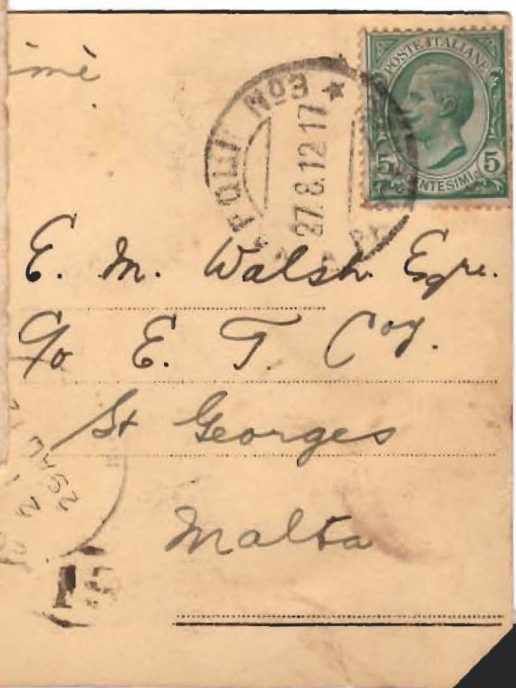 imé
POSTE ITALIANE
5 CENTESIMI 5
Nº3
27.8.12 17
E. M. Walsh Esqre.
c/o E. T. Coy.
St Georges
Malta